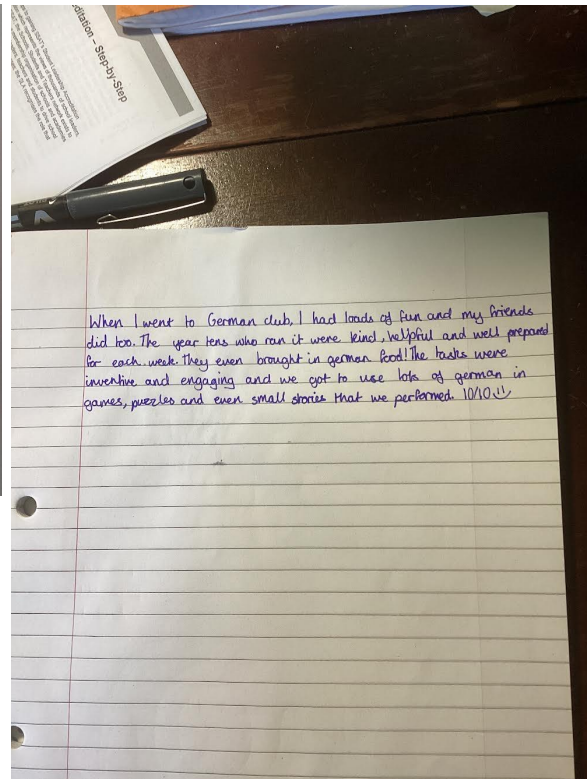 ditation – Step-by-Step
When I went to German club, I had loads of fun and my friends
did too. The year tens who ran it were kind, helpful and well prepared
for each week. They even brought in german food! The tasks were
inventive and engaging and we got to use lots of german in
games, puzzles and even small stories that we performed. 10/10